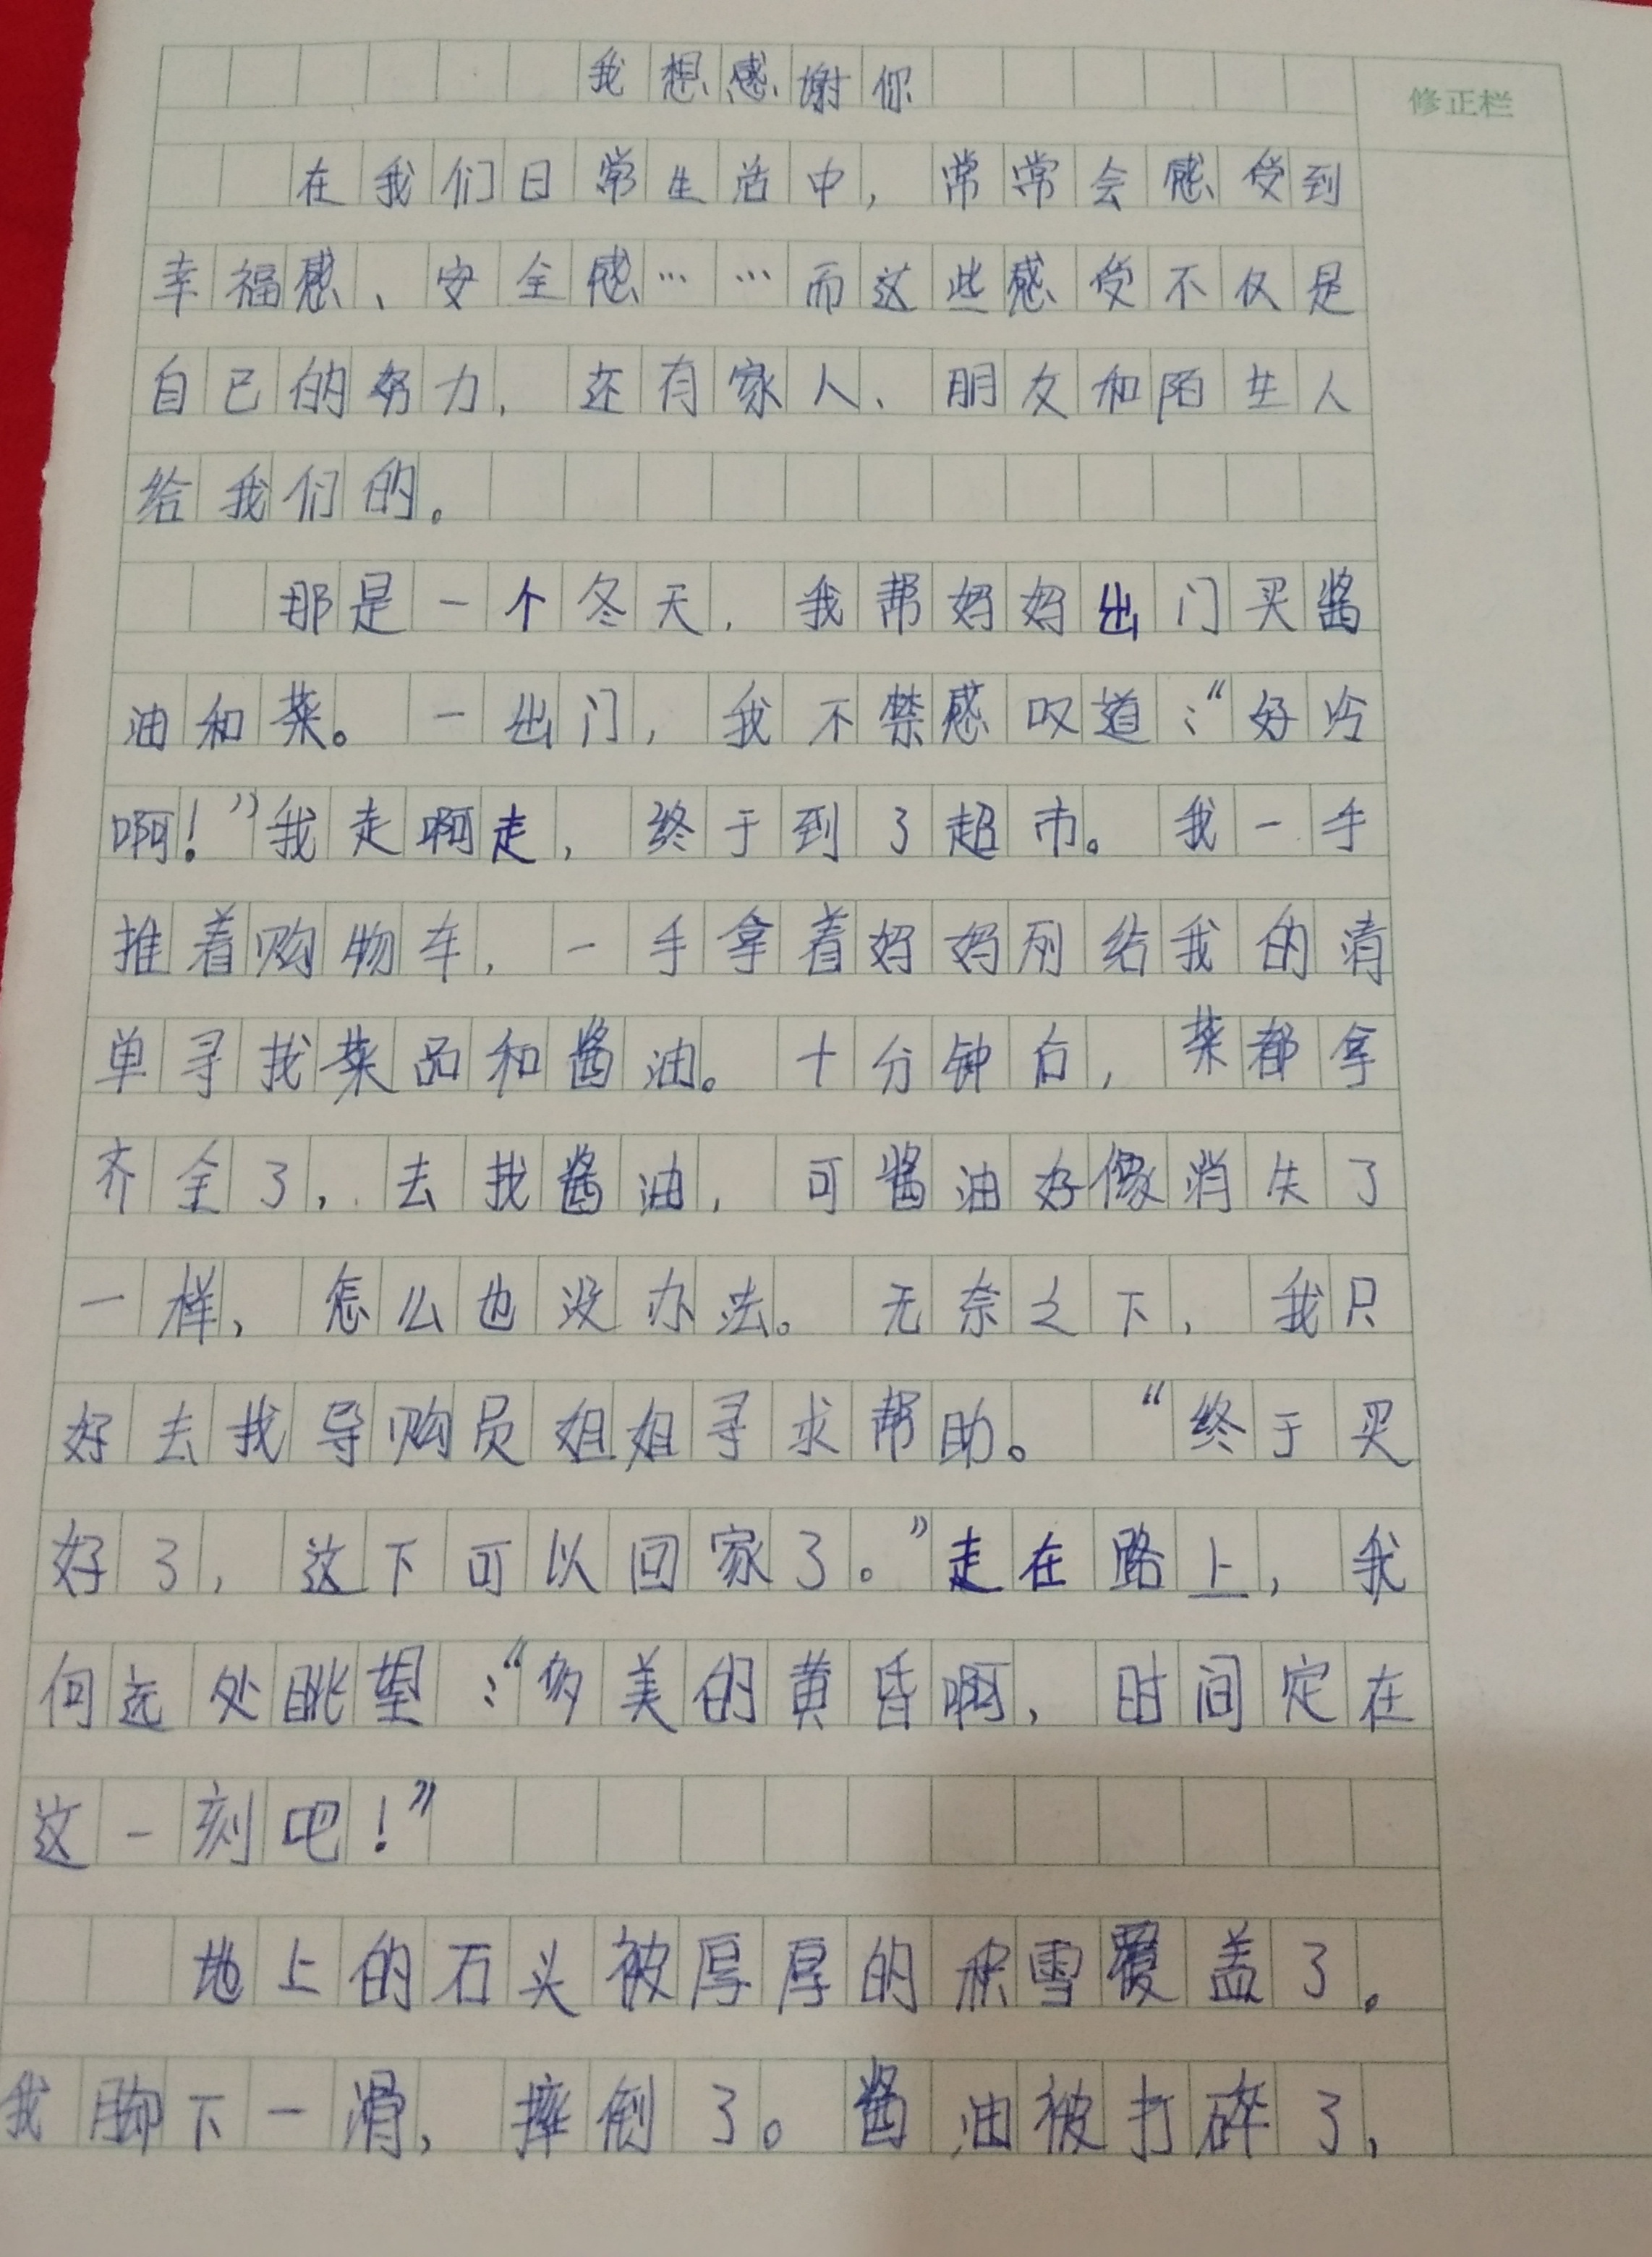 我想感谢你
修正栏
在我们日常生活中，常常会感受到
幸福感、安全感……而这些感受不仅是
自己的努力，还有家人、朋友和陌生人
给我们的。
那是一个冬天，我帮妈妈出门买酱
油和菜。一出门，我不禁感叹道：“好冷
啊！”我走啊走，终于到了超市。我一手
推着购物车，一手拿着妈妈列给我的清
单寻找菜品和酱油。十分钟后，菜都拿
齐全了，去找酱油，可酱油好像消失了
一样，怎么也没办法。无奈之下，我只
好去找导购员姐姐寻求帮助。“终于买
好了，这下可以回家了。”走在路上，我
向远处眺望：“多美的黄昏啊，时间定在
这一刻吧！”
地上的石头被厚厚的积雪覆盖了。
我脚下一滑，摔倒了。酱油被打碎了，